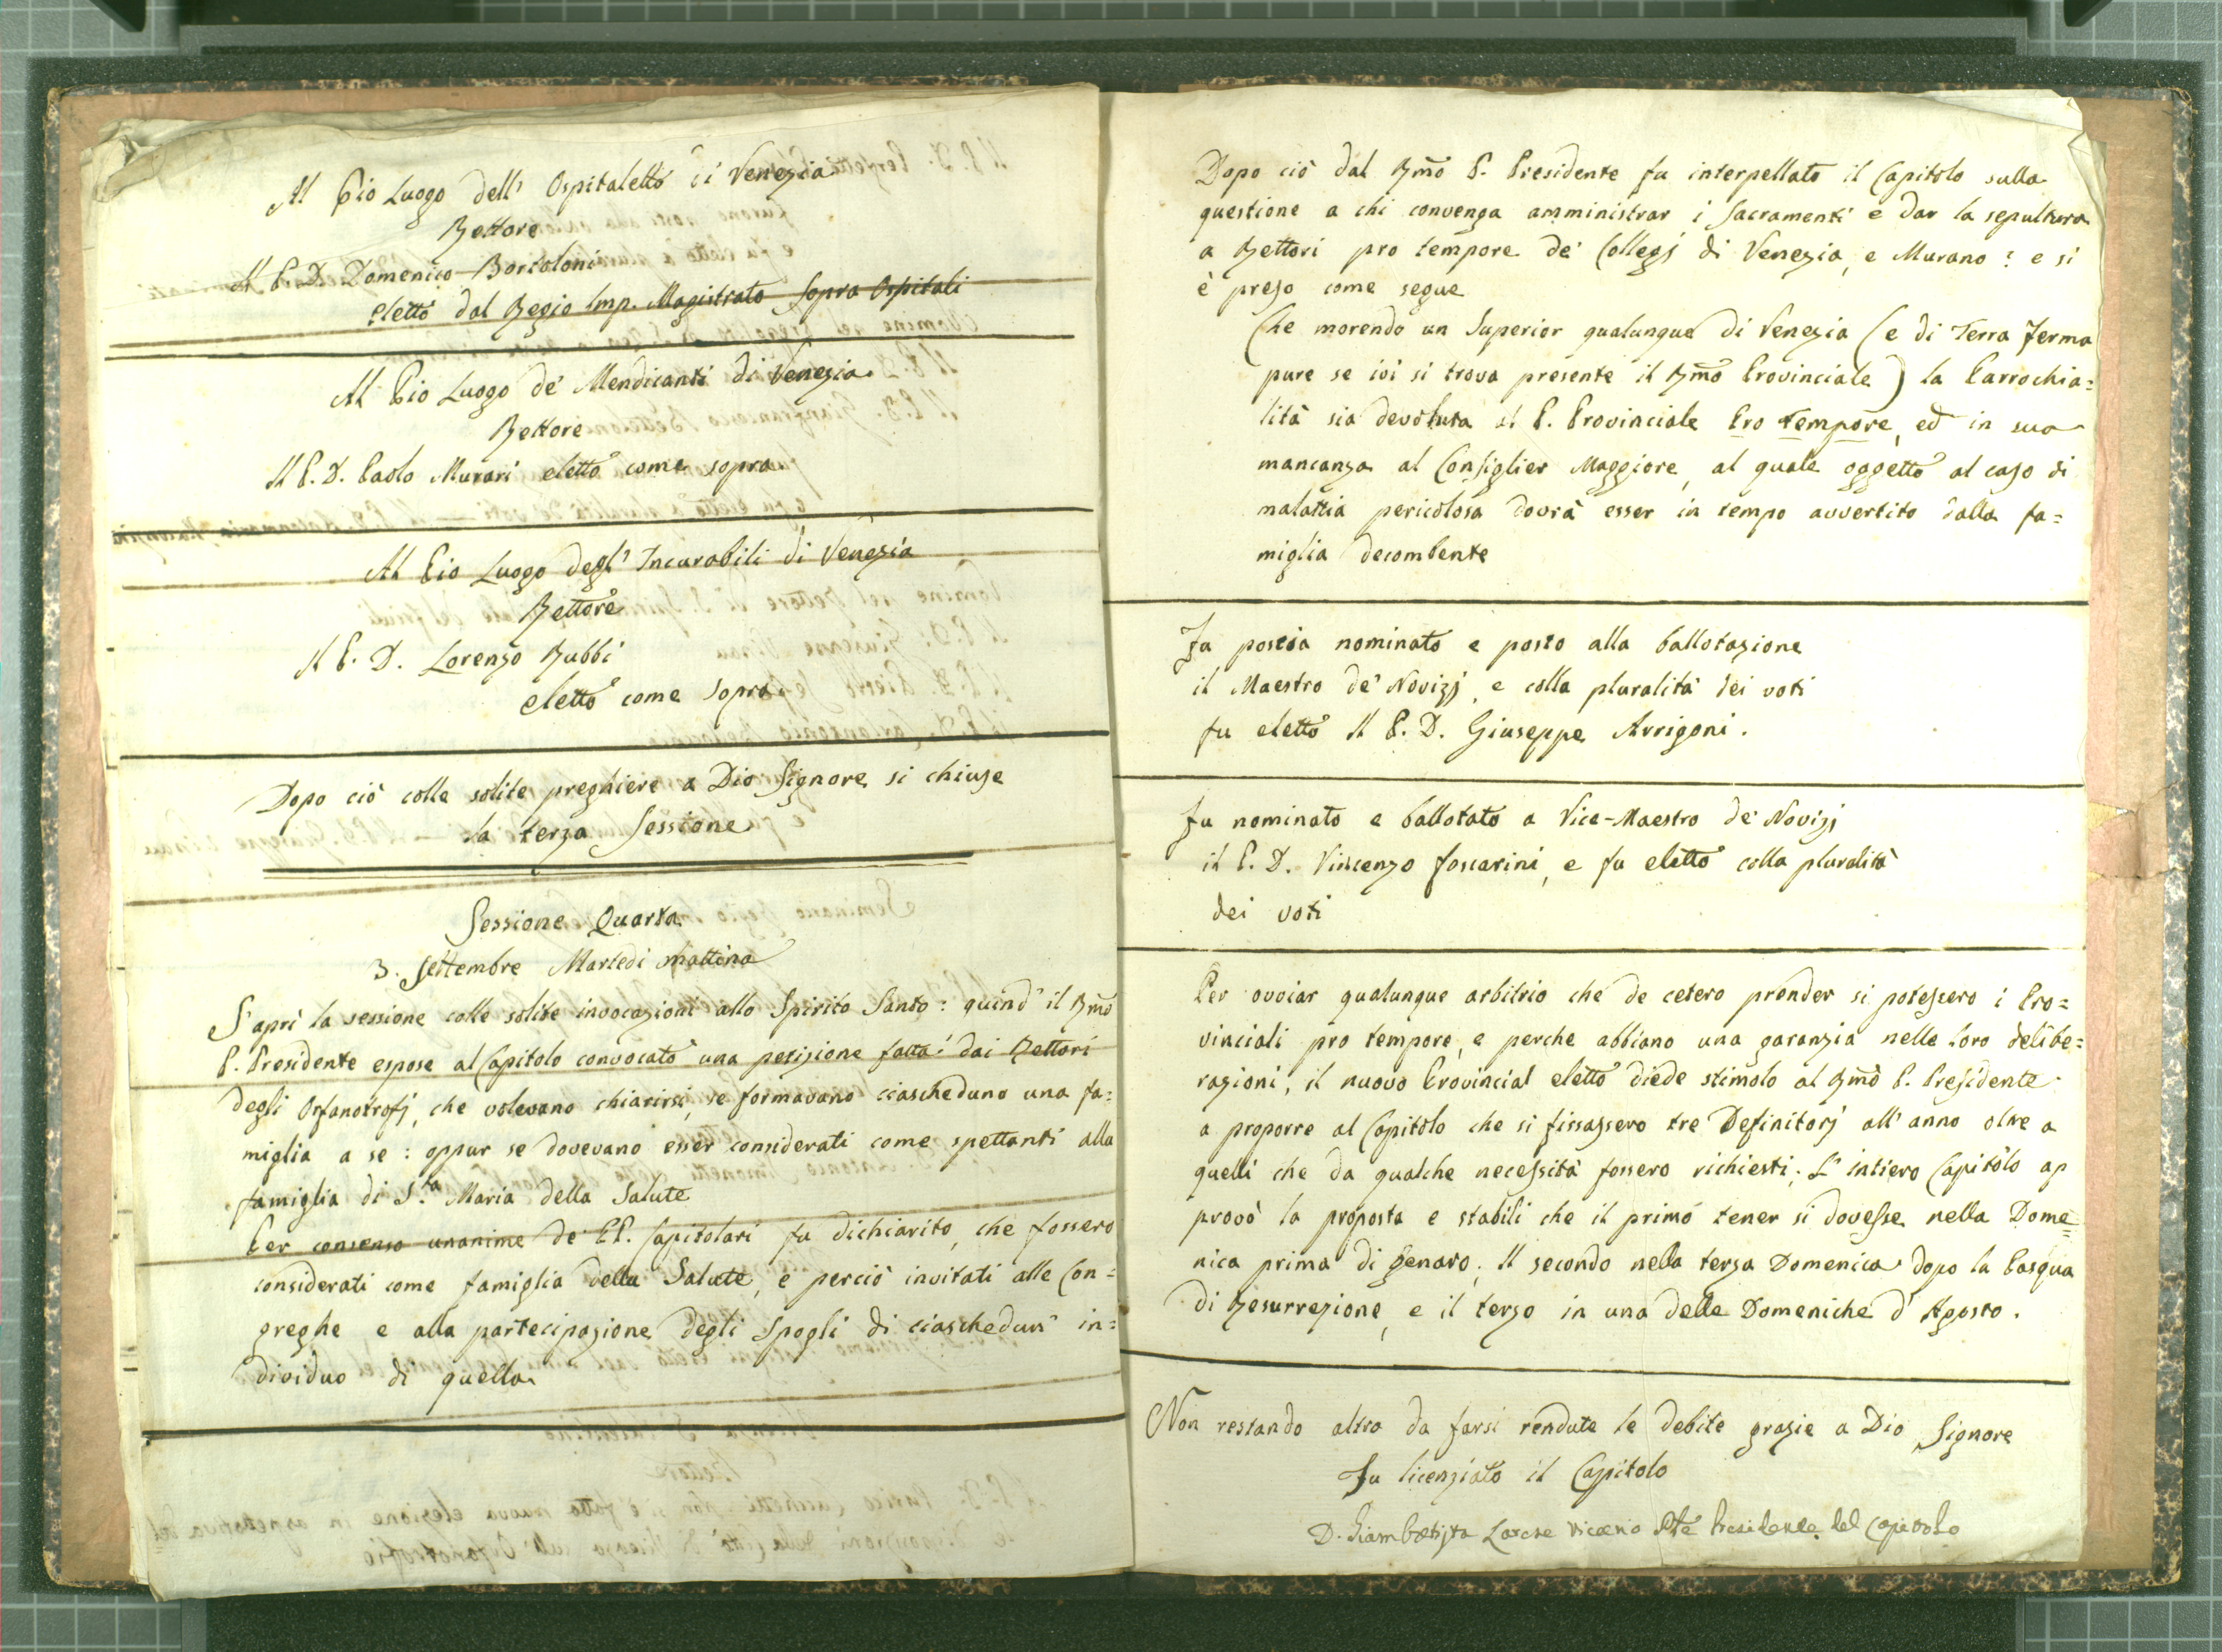 Al Pio Luogo dell' Ospitaletto di Venezia
Rettore
Il P. D. Domenico Bortoloni
eletto dal Regio Imp. Magistrato sopra Ospitali
Al Pio Luogo de' Mendicanti di Venezia
Rettore
Il P. D. Paolo Murari eletto come sopra
Al Pio Luogo degl' Incurabili di Venezia
Rettore
Il P. D. Lorenzo Rubbi
eletto come sopra
Dopo ciò colle solite preghiere a Dio Signore si chiuse
la terza Sessione
Sessione Quarta
3. Settembre Martedi mattina
S' aprì la sessione colle solite invocazioni allo Spirito Santo: quind' il Rmo
P. Presidente espose al Capitolo convocato una petizione fatta dai Rettori
degli Orfanotrofj, che volevano chiarirsi, se formavano ciascheduno una fa=
miglia a se: oppur se dovevano esser considerati come spettanti alla
famiglia di S.ta Maria della Salute
Per consenso unanime de' PP. Capitolari fu dichiarito, che fossero
considerati come famiglia della Salute, e perciò invitati alle Con=
greghe e alla partecipazione degli Spogli di ciaschedun' in=
dividuo di quella
Dopo ciò dal Rmo P. Presidente fu interpellato il Capitolo sulla
questione a chi convenga amministrar i Sacramenti e dar la sepultura
a Rettori pro tempore de' Collegj di Venezia, e Murano? e si
è preso come segue
Che morendo un Superior qualunque di Venezia (e di Terra Ferma
pure se ivi si trova presente il Rmo Provinciale) la Parrochia=
lità sia devoluta al P. Provinciale Pro tempore, ed in sua
mancanza al Consiglier Maggiore, al quale oggetto al caso di
malattia pericolosa dovrà esser in tempo avvertito dalla fa=
miglia decombente
Fu poscia nominato e posto alla ballotazione
il Maestro de' Novizj, e colla pluralità dei voti
fu eletto Il P. D. Giuseppe Arrigoni.
Fu nominato e ballotato a Vice-Maestro de' Novizj
il P. D. Vincenzo Foscarini, e fu eletto colla pluralità
dei voti
Per ovviar qualunque arbitrio che de cetero prender si potessero i Pro=
vinciali pro tempore, e perche abbiano una garanzia nelle loro delibe=
razioni, il nuovo Provincial eletto diede stimolo al Rmo P. Presidente
a proporre al Capitolo che si fissassero tre Definitorj all' anno oltre a
quelli che da qualche necessità fossero richiesti. L' intiero Capitolo ap
provò la proposta e stabilì che il primo tener si dovesse nella Dome=
nica prima di Genaro; Il secondo nella terza Domenica dopo la Pasqua
di Resurrezione, e il terzo in una delle Domeniche d' Agosto.
Non restando altro da farsi rendute le debite grazie a Dio Signore
Fu licenziato il Capitolo
D. Giambatista Larese Presidente del Capitolo